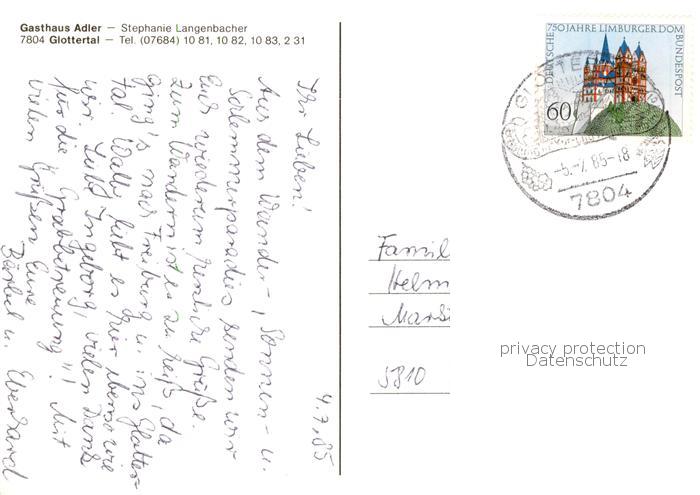 Gasthaus Adler – Stephanie Langenbacher
7804 Glottertal – Tel. (07684) 10 81, 10 82, 10 83, 2 31
4.7.85
Ihr Lieben!
Aus dem Wander-, Sonnen- u.
Schlemmerparadies senden wir
Euch wiederum herzliche Grüße.
Zum Wandern ist es zu heiß, da
ging's nach Freiburg u. ins Glotter-
tal. Wally liebt es hier ebenso wie
wir. Liebe Ingeborg, vielen Dank
für die Grabbetreuung"! Mit
vielen Grüßen Eure
Bärbel u. Eberhard
DEUTSCHE BUNDESPOST
750 JAHRE LIMBURGER DOM
60
7804
Famil
Helm
5810
privacy protection
Datenschutz